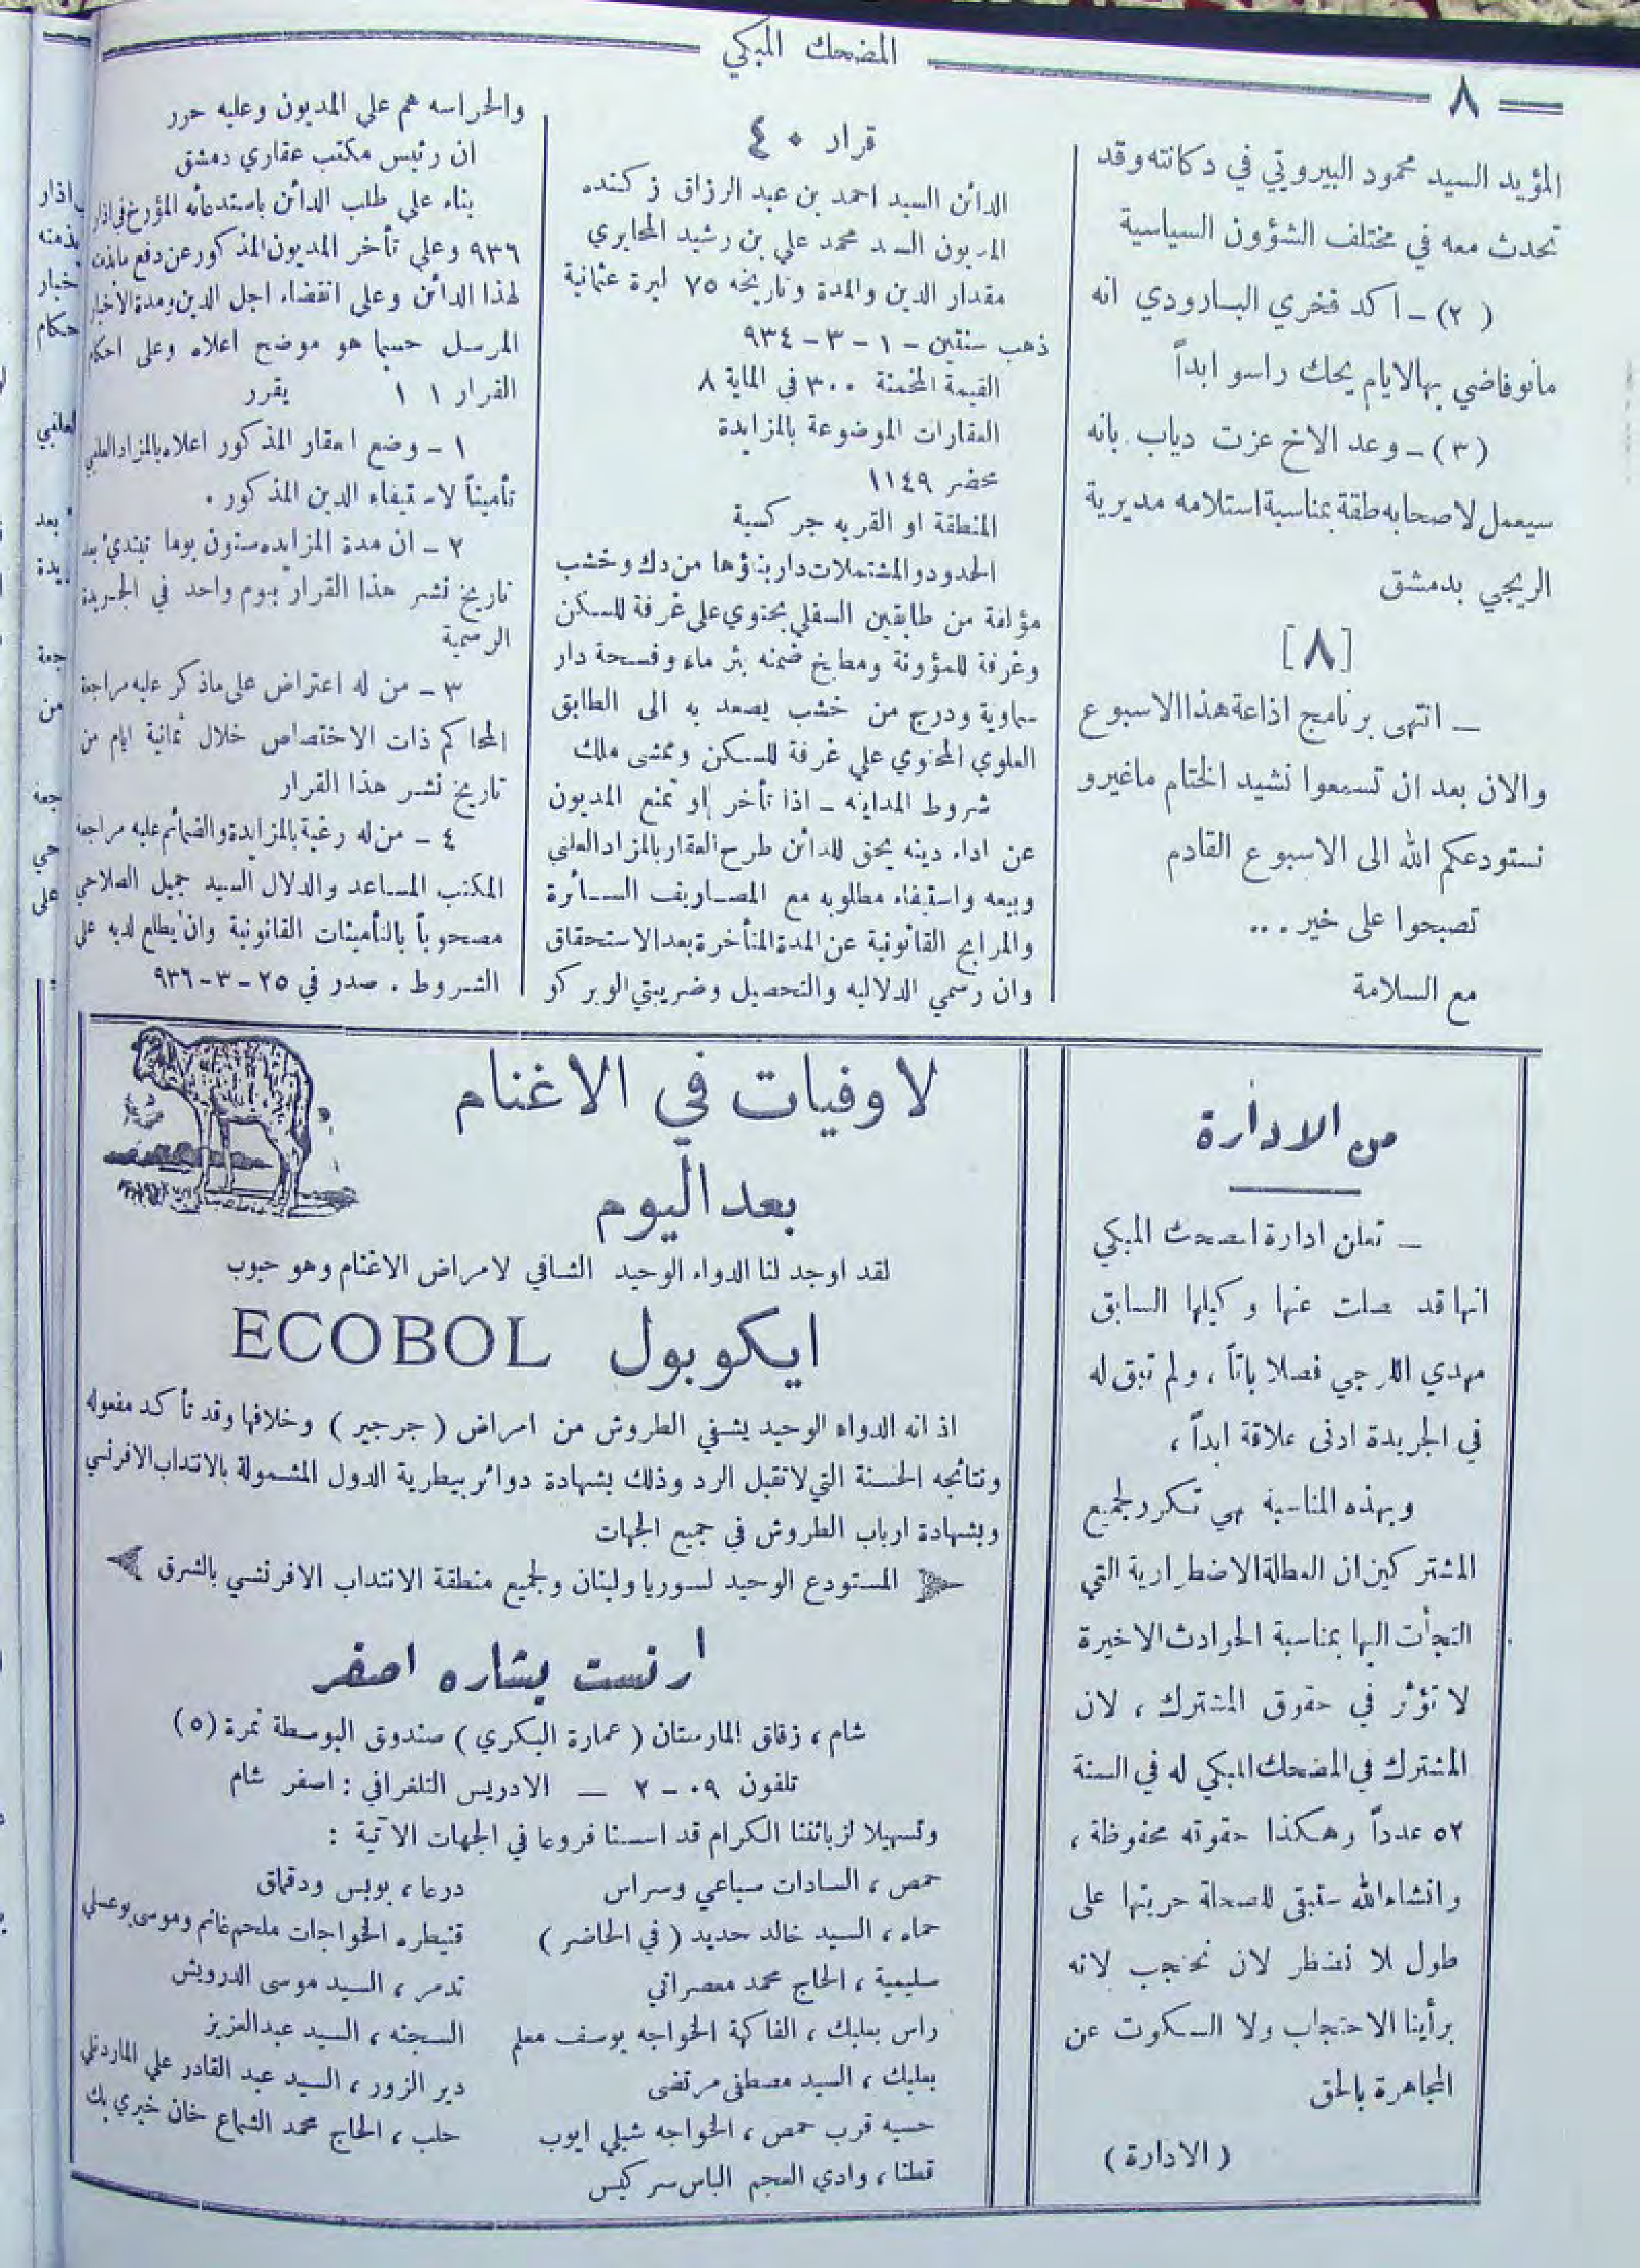 المضحك المبكي
٨
المؤيد السيد محمود البيروتي في دكانته وقد
تحدث معه في مختلف الشؤون السياسية
(٢) - اكد فخري البارودي انه
مانو فاضي بهالايام يحك راسو ابداً
(٣) - وعد الاخ عزت دياب بانه
سيعمل لاصحابه طقة بمناسبة استلامه مديرية
الريجي بدمشق
[٨]
— انتهى برنامج اذاعة هذا الاسبوع
والان بعد ان تسمعوا نشيد الختام ماغيرو
نستودعكم الله الى الاسبوع القادم
تصبحوا على خير ...
مع السلامة
قرار ٤٠
الدائن السيد احمد بن عبد الرزاق زكنده
المديون السيد محمد علي بن رشيد المحايري
مقدار الدين والمدة وتاريخه ٧٥ ليرة عثمانية
ذهب سنتين - ١ - ٣ - ٩٣٤
القيمة المخمنة ٣٠٠ في الماية ٨
العقارات الموضوعة بالمزايدة
محضر ١١٤٩
المنطقة او القريه جركسية
الحدود والمشتملات دار بناؤها من دك وخشب
مؤلفة من طابقين السفلي يحتوي على غرفة للسكن
وغرفة للمؤونة ومطبخ ضمنه بئر ماء وفسحة دار
سماوية ودرج من خشب يصعد به الى الطابق
العلوي المحتوي علي غرفة للسكن وممشى ملك
شروط المداينه - اذا تأخر او تمنع المديون
عن اداء دينه يحق للدائن طرح العقار بالمزاد العلني
وبيعه واستيفاء مطلوبه مع المصاريف السائرة
والمرابح القانونية عن المدة المتأخرة بعد الاستحقاق
وان رسمي الدلاليه والتحصيل وضريبتي الويركو
والحراسه هم علي المديون وعليه حرر
ان رئيس مكتب عقاري دمشق
بناء علي طلب الدائن باستدعائه المؤرخ في اذار
٩٣٦ وعلي تأخر المديون المذكور عن دفع ما بذمته
لهذا الدائن وعلى انقضاء اجل الدين ومدة الاخبار
المرسل حسبما هو موضح اعلاه وعلى احكام
القرار ١١ يقرر
١ - وضع العقار المذكور اعلاه بالمزاد العلني
تأميناً لاستيفاء الدين المذكور .
٢ - ان مدة المزايده ستون يوما تبتدئ بعد
تاريخ نشر هذا القرار بيوم واحد في الجريدة
الرسمية
٣ - من له اعتراض على ماذكر عليه مراجعة
المحاكم ذات الاختصاص خلال ثمانية ايام من
تاريخ نشر هذا القرار
٤ - من له رغبة بالمزايدة والضمائم عليه مراجعة
المكتب المساعد والدلال السيد جميل الصلاحي
مصحوباً بالتأمينات القانونية وان يطلع لديه على
الشروط . صدر في ٢٥ - ٣ - ٩٣٦
من الادارة
— تعلن ادارة المضحك المبكي
انها قد فصلت عنها وكيلها السابق
مهدي فصلا باتاً ، ولم تبق له
في الجريدة ادنى علاقة ابداً ،
وبهذه المناسبة هي تكرر لجميع
المشتركين ان العطالة الاضطرارية التي
التجأت اليها بمناسبة الحوادث الاخيرة
لا تؤثر في حقوق المشترك ، لان
المشترك في المضحك المبكي له في السنة
٥٢ عدداً وهكذا حقوقه محفوظة ،
وانشاء الله ستبقى للصحافة حريتها على
طول لا نضطر لان نحتجب لانه
برأينا الاحتجاب ولا السكوت عن
المجاهرة بالحق
(الادارة)
لا وفيات في الاغنام
بعد اليوم
لقد اوجد لنا الدواء الوحيد الشافي لامراض الاغنام وهو حبوب
ايكوبول ECOBOL
اذ انه الدواء الوحيد يشفي الطروش من امراض (جرجير) وخلافها وقد تأكد مفعوله
ونتائجه الحسنة التي لا تقبل الرد وذلك بشهادة دوائر بيطرية الدول المشمولة بالانتداب الافرنسي
وبشهادة ارباب الطروش في جميع الجهات
المستودع الوحيد لسوريا ولبنان ولجميع منطقة الانتداب الافرنسي بالشرق
ارنست بشاره اصفر
شام ، زقاق المارستان (عمارة البكري) صندوق البوسطة نمرة (٥)
تلفون ٠٩ - ٢ — الادريس التلغرافي : اصفر شام
وتسهيلا لزبائننا الكرام قد اسسنا فروعا في الجهات الآتية :
حمص ، السادات سباعي وسراس
حماه ، السيد خالد حديد (في الحاضر)
سليمية ، الحاج محمد معصراتي
راس بعلبك ، الفاكهة الخواجه يوسف معلم
بعلبك ، السيد مصطفى مرتضى
حسيه قرب حمص ، الخواجه شبلي ايوب
قطنا ، وادي العجم الياس سركيس
درعا ، بويس ودقماق
قنيطره الخواجات ملحم غانم وموسى بوعسلي
تدمر ، السيد موسى الدرويش
السخنه ، السيد عبد العزيز
دير الزور ، السيد عبد القادر علي
حلب ، الحاج محمد الشماع خان خيري بك